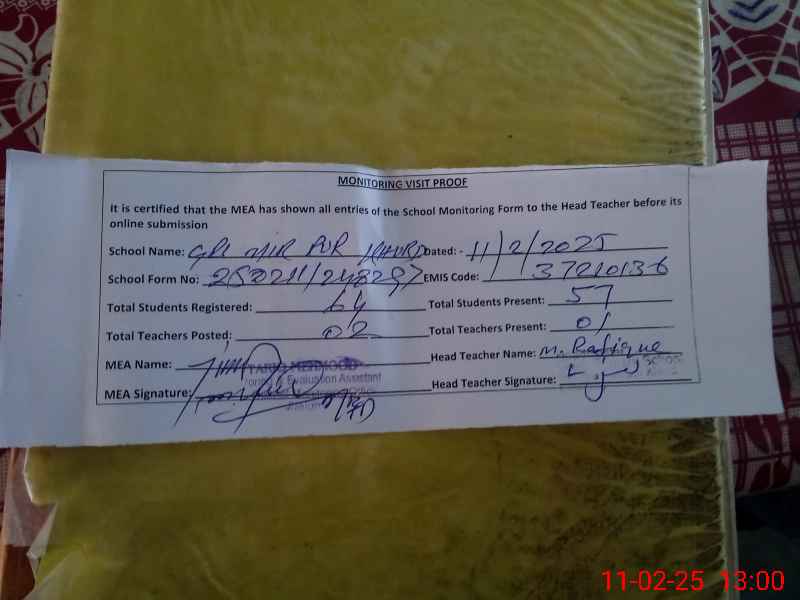 MONITORING VISIT PROOF
It is certified that the MEA has shown all entries of the School Monitoring Form to the Head Teacher before its
online submission
School Name: GPS MIR PUR KHURD Dated: - 11/2/2025
School Form No: EMIS Code: 37210136
Total Students Registered: 64 Total Students Present: 57
Total Teachers Posted: 02 Total Teachers Present: 01
MEA Name: TARIQ MEHMOOD Head Teacher Name: M. Rafique
Evaluation Assistant
MEA Signature: Head Teacher Signature:
11-02-25 13:00